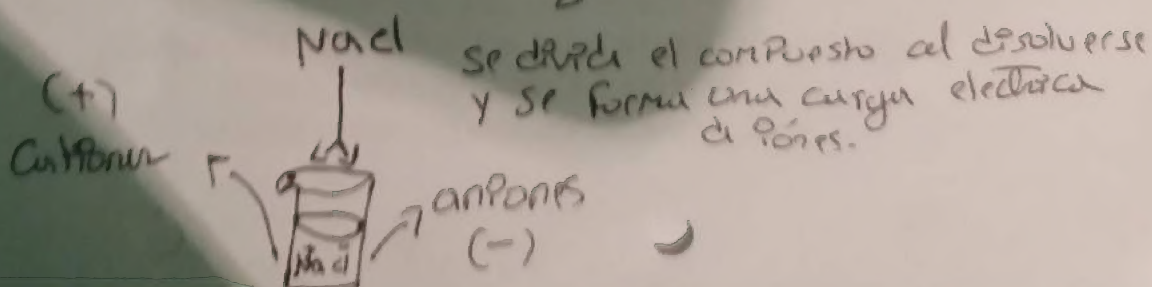 NaCl
se divide el compuesto al disolverse
y se forma una carga electrica
de iónes.
(+)
Cationes
aniones
(-)
Na Cl